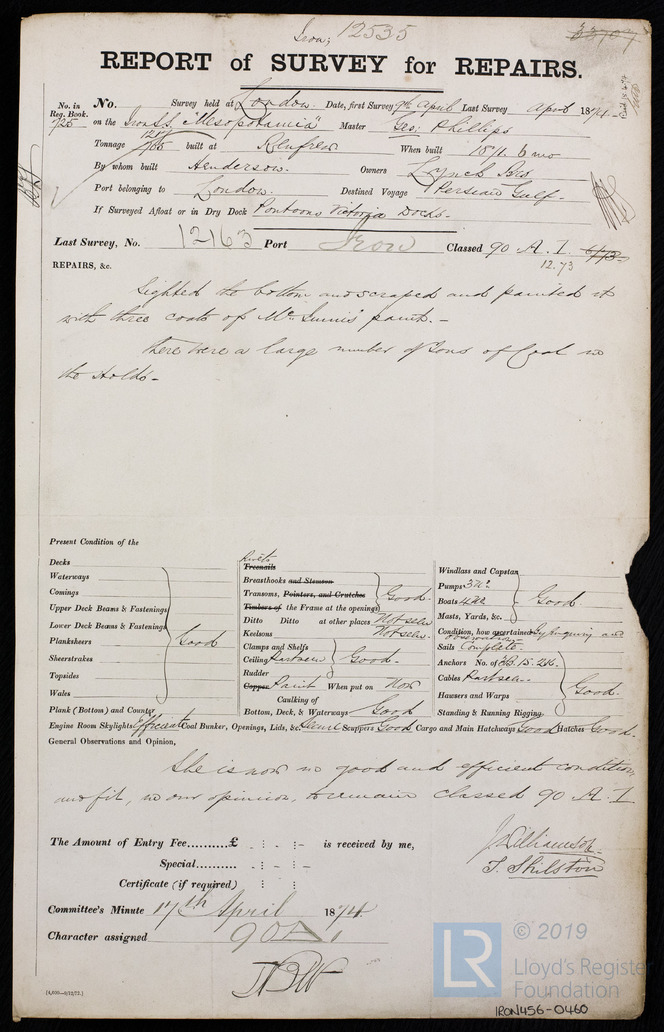 Iron; 12535
REPORT of SURVEY for REPAIRS.
No. in Reg. Book. No. Survey held at London. Date, first Survey 9th April Last Survey April 1874
725 on the Iron S.S. "Mesopotamia" Master Geo: Phillips
Tonnage 1217 built at Renfrew When built 1871. 6 mo
By whom built Henderson. Owners Lynch Bros
Port belonging to London. Destined Voyage Persian Gulf.
If Surveyed Afloat or in Dry Dock Pontoons Victoria Docks.
Last Survey, No. 12163 Port Iron Classed 90 A.1. 6/73
12.73
REPAIRS, &c.
Sighted the bottom and scraped and painted it
with three coats of Mc. Innis paint.-
There were a large number of Tons of Coal in
the Holds-
Present Condition of the
Decks
Waterways
Comings
Upper Deck Beams & Fastenings
Lower Deck Beams & Fastenings
Planksheers Good
Sheerstrakes
Topsides
Wales
Plank (Bottom) and Counter
Rivets
Treenails
Breasthooks and Stemson
Transoms, Pointers, and Crutches Good.
Timbers of the Frame at the openings
Ditto Ditto at other places Not seen
Keelsons Not seen.
Clamps and Shelfs
Ceiling Part seen Good.
Rudder
Copper Paint When put on Now
Caulking of
Bottom, Deck, & Waterways Good
Windlass and Capstan
Pumps 3 No.
Boats 4 No. Good
Masts, Yards, &c.
Condition, how ascertained By inquiry and
observation
Sails Complete.
Anchors No. of
Cables Part seen
Hawsers and Warps Good.
Standing & Running Rigging
Engine Room Skylights Efficient Coal Bunker, Openings, Lids, &c. Secure Scuppers Good Cargo and Main Hatchways Good Hatches Good.
General Observations and Opinion,
She is now in good and efficient condition
and fit, in our opinion, to remain classed 90 A.1
The Amount of Entry Fee..........£ is received by me,
Special..........
Certificate (if required)
J. Williamson
T. Shilston
Committee's Minute 17th April 1874
Character assigned 90 A 1
[4,000—9/12/72.]
LR © 2019
Lloyd's Register
Foundation
IRON456-0460